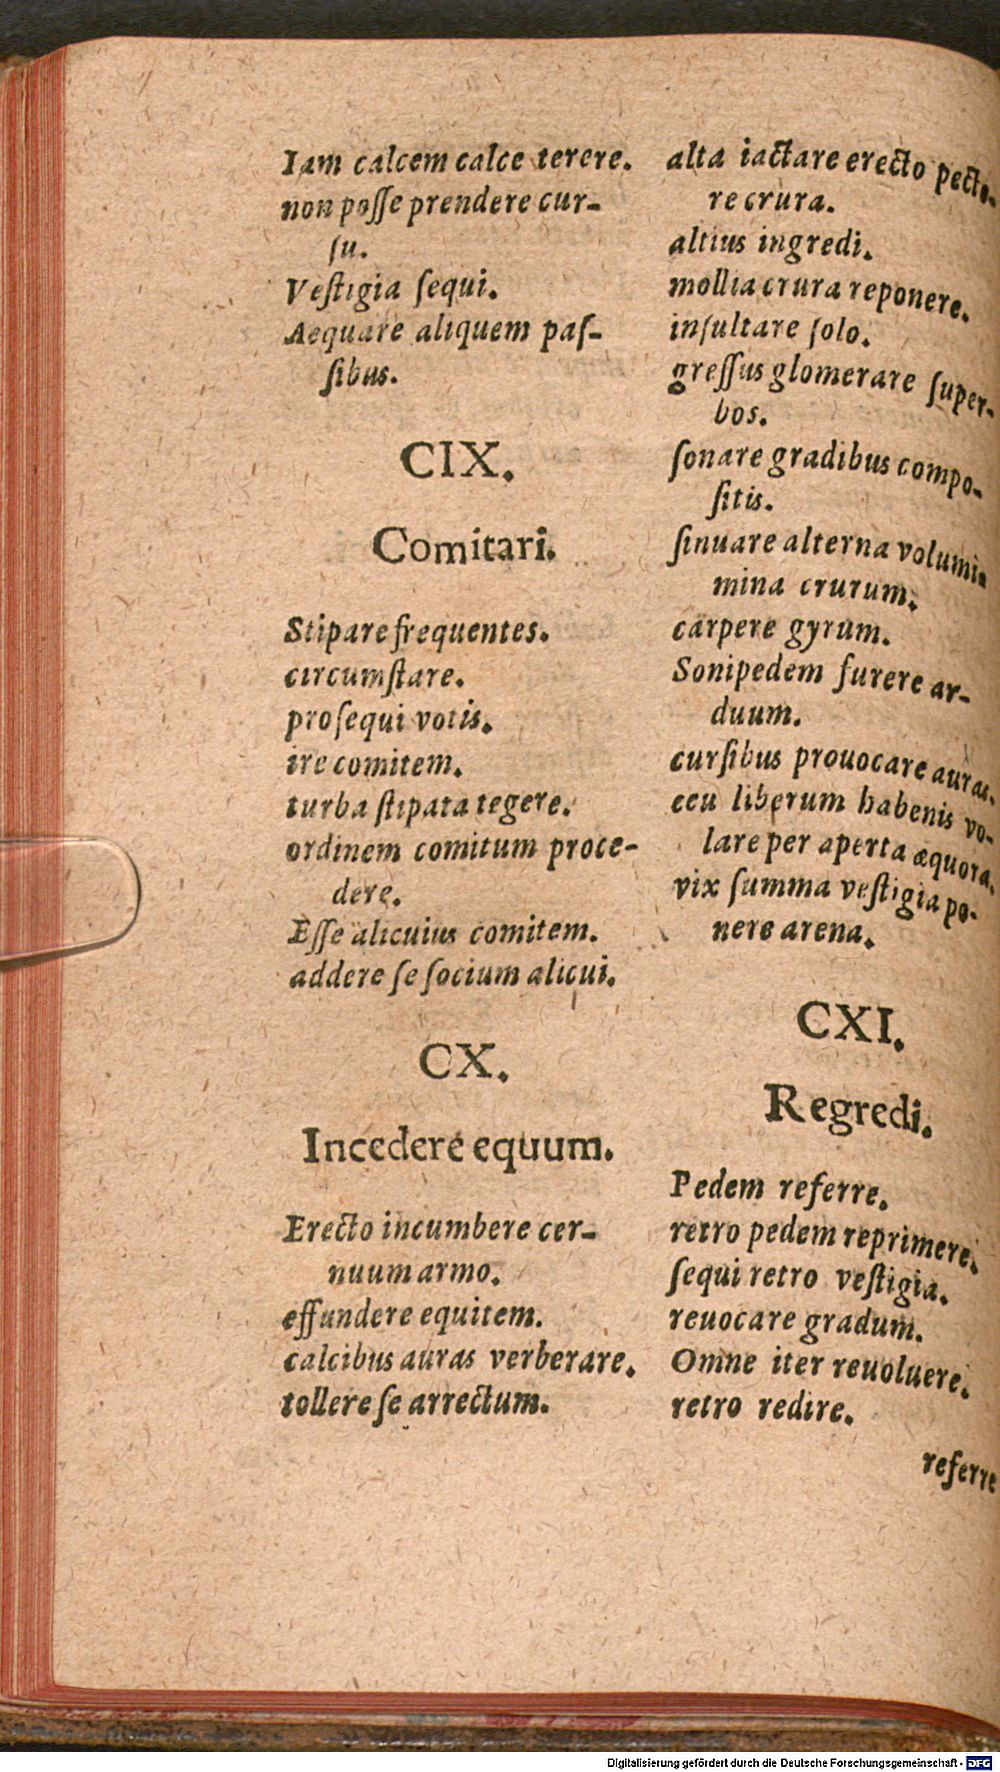 Iam calcem calce terere.
non poſſe prendere cur-
ſu.
Veſtigia ſequi.
Aequare aliquem paſ-
ſibus.
CIX.
Comitari.
Stipare frequentes.
circumſtare.
proſequi votis.
ire comitem.
turba ſtipata tegere.
ordinem comitum proce-
dere.
Eſſe alicuius comitem.
addere ſe ſocium alicui.
CX.
Incedere equum.
Erecto incumbere cer-
nuum armo.
effundere equitem.
calcibus auras verberare.
tollere ſe arrectum.
alta iactare erecto pecto-
re crura.
altius ingredi.
mollia crura reponere.
inſultare ſolo.
greſſus glomerare ſuper-
bos.
ſonare gradibus compo-
ſitis.
ſinuare alterna volumi-
mina crurum.
carpere gyrum.
Sonipedem furere ar-
duum.
curſibus prouocare auras.
ceu liberum habenis vo-
lare per aperta æquora.
vix ſumma veſtigia po-
nere arena.
CXI.
Regredi.
Pedem referre.
retro pedem reprimere.
ſequi retro veſtigia.
reuocare gradum.
Omne iter reuoluere.
retro redire.
referre
Digitalisierung gefördert durch die Deutsche Forschungsgemeinschaft - DFG